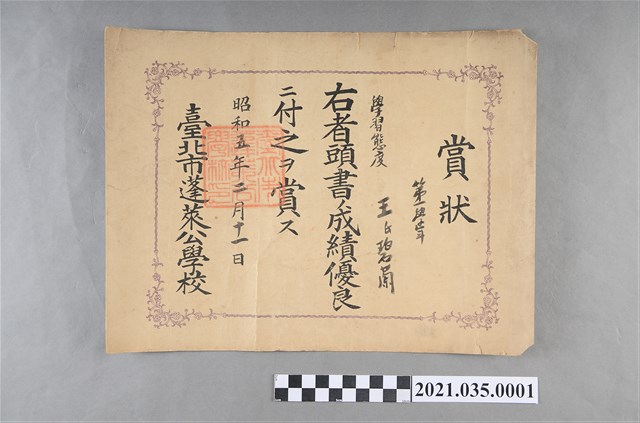 賞狀
第一學年
王氏碧蘭
學習態度
右者頭書ノ成績優良
ニ付之ヲ賞ス
昭和五年二月十一日
臺北市蓬萊公學校
2021.035.0001